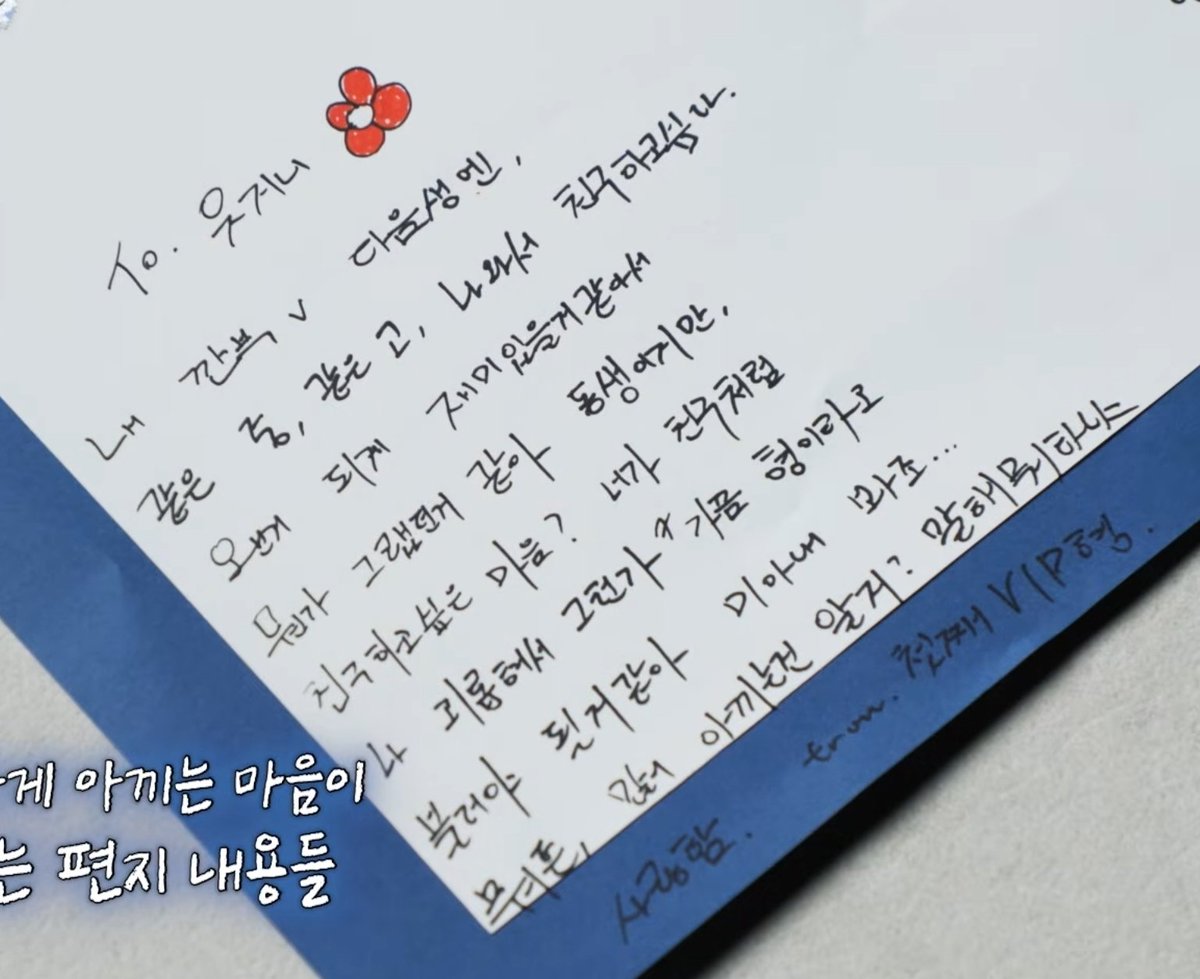 To. 웃거니
내 깐부 v 다음생엔,
같은 중, 같은 고, 나와서 친구하고싶다.
오반게 되게 재미있을거같아서
뭔가 그랩던게 같아 동생이지만,
친구하고싶은 마음? 너가 친구처럼
나 괴롭혀서 그런가ㅋ 가끔 형이라고
불러야 될거같아 미아내 봐조...
무튼, 많이 아끼는건 알거? 말해뭐해 다냐
사랑함. from. 첫째 VIP형.
하게 아끼는 마음이
는 편지 내용들